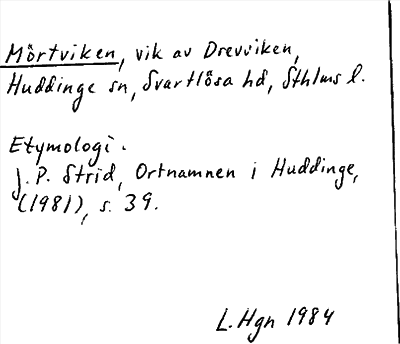 Mörtviken, vik av Drevviken,
Huddinge sn, Svartlösa hd, Sthlms l.
Etymologi.
J. P. Strid, Ortnamnen i Huddinge,
(1981), s. 39.
L. Hgn 1984